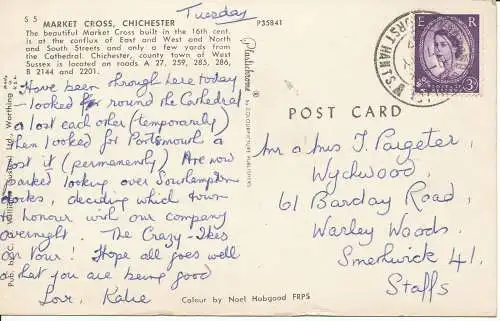 S 5
MARKET CROSS, CHICHESTER
Tuesday
P35841
The beautiful Market Cross built in the 16th cent.
is at the conflux of East and West and North
and South Streets and only a few yards from
the Cathedral. Chichester, county town of West
Sussex is located on roads A 27, 259, 285, 286,
B 2144 and 2201.
Have been through here today
- looked for round the Cathedral
& lost each other (temporarily)
then looked for Portsmouth &
lost it (permanently) Are now
parked looking over Southampton
docks, deciding which town
to honour with our company
overnight. The Crazy-Ikes
on Tour! Hope all goes well
& that you are being good
Love, Katie
Colour by Noel Habgood FRPS
Pub. by C. A. William Gastrell Ltd., Worthing
Plastichrome ®
by COLOURPICTURE PUBLISHERS
POST CARD
E R
3D
Mr & Mrs J. Pargeter
Wychwood,
61 Barclay Road,
Warley Woods,
Smethwick 41,
Staffs